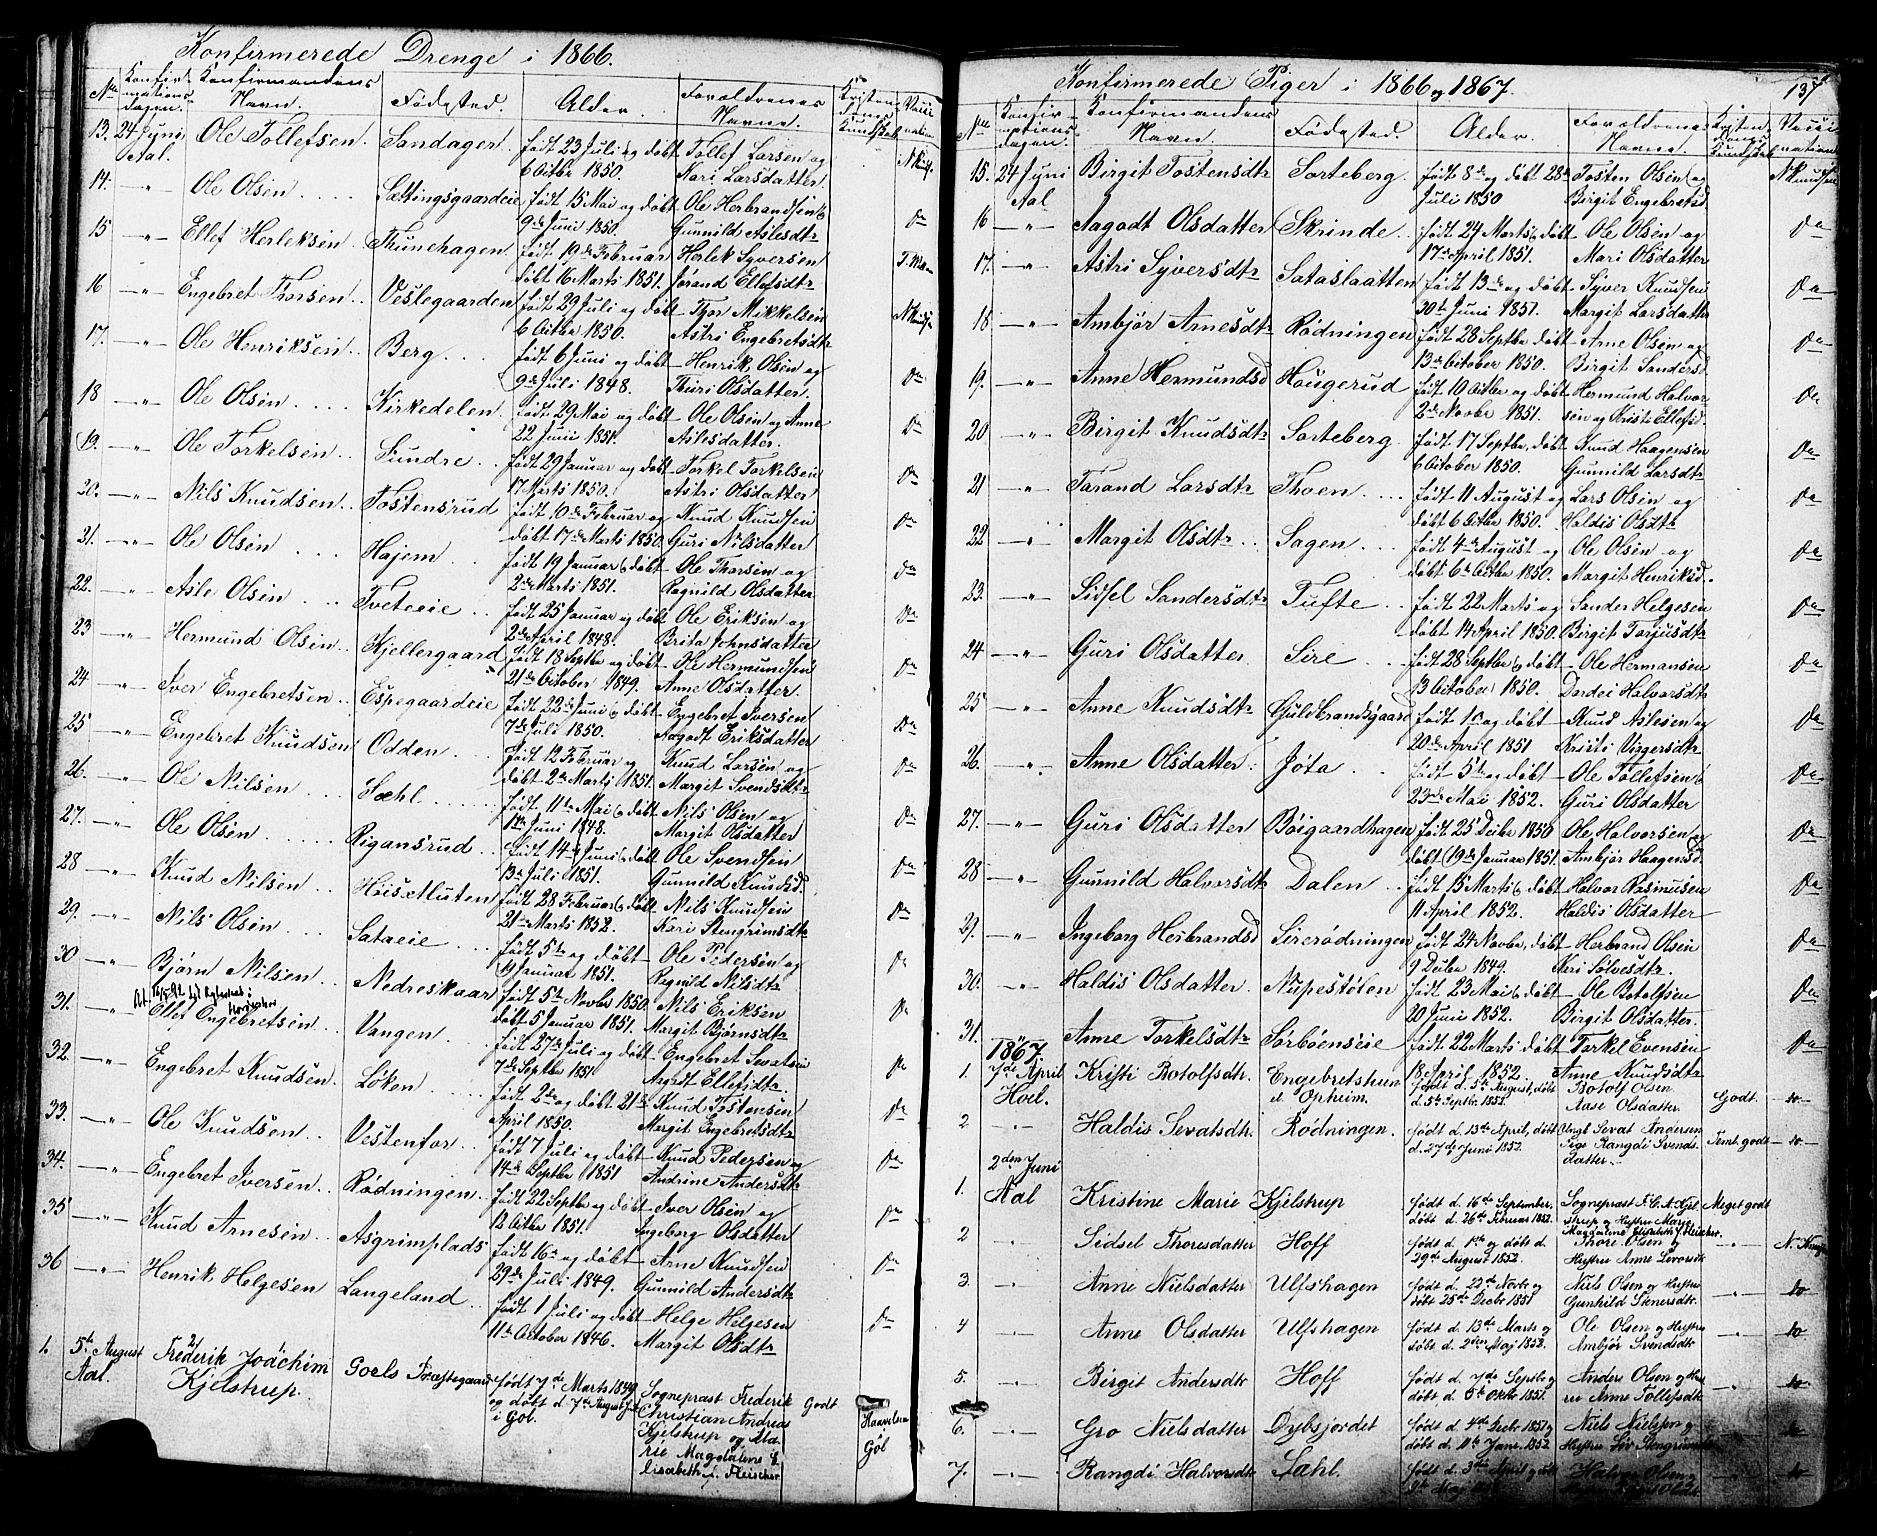 Konfirmerede Drenge i 1866.
No Konfirmationsdagen. Konfirmandens Navn. Fødested. Alder. Forældrenes Navne. Kristendoms Kundskab Vaccination
13. 24 Juni Ole Tollefsen Sandager født 23 Juli og døbt Tollef Larsen og
Aal. 6 Octbr 1850. Kari Larsdatter NKnuds.
14. —"— Ole Olsen .... Sættingsgaardeie født 15 Mai og døbt Ole Herbrandsen og
9de Juni 1850. Gunnild Aslesdtr Do
15 —"— Ellef Herleksen Thunehagen født 19de Februar Herlek Syversen
døbt 16 Marts 1851. Jørand Ellefsdtr
16 —"— Engebret Thorsen Vestegaarden født 29 Juli og døbt Thor Mikkelsen
6 Octbr 1850. Astri Engebretsdtr NKnuds.
17. —"— Ole Henriksen Berg... født 6 Juni og døbt Henrik Olsen og
9de Juli 1848. Thuri Olsdatter. Do
18 —"— Ole Olsen .... Kirkedelen født 29 Mai og døbt Ole Olsen og Anne
22 Juni 1851. Aslesdatter. Do
19. —"— Ole Torkelsen Sundre født 29 Januar og døbt Torkel Torkelsen
17 Marts 1850. Astri Olsdatter Do
20. —"— Nils Knudsen Tostensrud født 10de Februar og Knud Knudsen
døbt 17de Marts 1850 Guri Nilsdatter Do
21. —"— Ole Olsen ... Hajem født 19 Januar og døbt Ole Thorsen og
2de Marts 1851. Ragnild Olsdatter Do
22. —"— Asle Olsen ... Tveteeie født 25 Januar og døbt Ole Eriksen og
2de April 1848. Brita Johnsdatter Do
23 —"— Hermund Olsen Kjellergaard født 18 Septbr og døbt Ole Hermundsen
21de October 1849. Anne Olsdatter. Do
24 —"— Iver Engebretsen Espegaardeie født 22de Juni og døbt Engebret Iversen
7de Juli 1850. Aagodt Eriksdatter Do
25 —"— Engebret Knudsen Odden født 12 Februar og Knud Larsen og
døbt 2de Marts 1851. Margit Svendsdtr Do
26. —"— Ole Nilsen ... Sæhl født 11te Mai og døbt Nils Olsen og
Juni 1848. Margit Olsdatter Do
27. —"— Ole Olsen .... Rigansrud født 14de Juni og døbt Ole Svendsen
13de Juli 1851. Gunnild Knudsd. Do
28 —"— Knud Nilsen født 28 Februar og døbt Nils Knudsen
21de Marts 1852. Kari Stengrimsdtr Do
29. —"— Nils Olsen Sataeie født 5te og døbt Ole Pedersen og
19 Januar 1851. Ragnild Nilsdtr Do
30 —"— Bjørn Nilsen Nedreskaar født 5te Novbr 1850. Nils Eriksen
døbt 5 Januar 1851. Margit Bjørnsdtr Do
31. —"— Ellef Engebretsen Vangen født 27de Juli og døbt Engebret Sevatsen
7de Septbr 1851 Aagodt Ellefsdtr. Do
32. —"— Engebret Knudsen Løken født 2de og døbt 21de Knud Tostensen
April 1850. Margit Engebretsdtr Do
33. —"— Ole Knudsen Vestenfor født 7 Juli og døbt Knud Pedersen og
14de Septbr 1851 Andrine Andersdtr Do
34. —"— Engebret Iversen Rødningen født 22 Septbr og døbt Iver Olsen og
12 Octbr 1851. Ingeborg Olsdatter Do
35 —"— Knud Arnesen Asgrimplads født 16de og døbt Arne Knudsen
29de Juli 1849. Gunnild Andersdtr Do
36 —"— Henrik Helgesen Langeland født 1 Juli og døbt Helge Helgesen
11te October 1846. Margit Olsdtr Do
1. 5te August Frederik Joachim Goels Præstegaard født 7de Marts 1849 Sognepræst Frederik Godt Haavelsen
Aal. Kjelstrup og døbt d. 7de August Christian Andreas
i Gol. Kjelstrup og Marie Magdalene Elisabeth f. Fleischer Gol
Konfirmerede Piger i 1866 og 1867. 137
No Konfirmationsdagen. Konfirmandens Navn. Fødested. Alder. Forældrenes Navne. Kristendoms Kundskab Vaccination
15. 24 Juni Birgit Tostensdtr Sorteberg født 8de og døbt 28de Tosten Olsen og NKnudsen
Aal Juli 1850 Birgit Engebretsd
16 —"— Aagodt Olsdatter Skrinde født 24 Marts og døbt Ole Olsen og Do
17de April 1851. Mari Olsdatter
17. —"— Astri Syversdtr Sataslaatten født 13de og døbt Syver Knudsen Do
30te Juni 1851. Margit Larsdatter
18 —"— Ambjør Arnesdtr Rødningen født 28 Septbr døbt Arne Olsen og Do
13de October 1850. Birgit Sandersd
19. —"— Anne Hermundsd Hougerud født 10 Octbr og døbt Hermund Halvor Do
2de Novbr 1851. sen og Kristi Ellefsd.
20 —"— Birgit Knudsdtr Sorteberg født 17 Septbr, døbt Knud Haagensen Do
6 October 1850. Gunnild Larsdtr
21 —"— Tarand Larsdtr Thoen født 11 August og Lars Olsen og Do
døbt 6 Octbr 1850. Haldis Olsdtr
22 " Margit Olsdtr Sagen født 4de August og Ole Olsen og Do
døbt 6te Octbr 1850. Margit Henriksd.
23. —"— Sidsel Sandersdtr Tufte født 22 Marts og Sander Helgesen Do
døbt 14 April 1850. Birgit Torjusdtr
24 —"— Guri Olsdatter Sire født 28 Septbr og døbt Ole Hermansen Do
13 October 1850. Dordei Halvorsdtr
25 —"— Anne Knudsdtr Guldbrandsgaard født 1ste og døbt Knud Aslesen og Do
20de April 1851 Kristi Viggersdtr
26. —"— Anne Olsdatter Jøta født 5te og døbt Ole Tollefsen og Do
23de Mai 1852. Guri Olsdatter
27. —"— Guri Olsdatter Bøigaardhagen født 25 Decbr 1850 Ole Halvorsen og Do
døbt 19de Januar 1851. Ambjør Haagensd.
28 —"— Gunnild Halvorsdtr Dalen født 15 Marts og døbt Halvor Rasmusen Do
11 April 1852. Haldis Olsdatter
29. —"— Ingeborg Herbrandsd Sirerødningen født 24 Novbr, døbt Herbrand Olsen Do
9 Decbr 1849. Kari Sølvesdtr.
30. —"— Haldis Olsdatter Nupestølen født 23 Mai og døbt Ole Botolfsen Do
20 Juni 1852. Birgit Olsdatter.
31. " Anne Torkelsdtr Sørbøenseie født 22 Marts døbt Torkel Evensen Do
18 April 1852. Anne Knudsdtr
1867
1. 7de April Kristi Botolfsdtr. Engebretstuen født d. 5te August, døbt Botolf Olsen
Hoel. Opheim. d. 5te Septbr. 1852. Aase Olsdatter. Godt do
2 —"— Haldis Sevatsdtr. Rødningen. født d. 13de April, døbt Ungk. Sevat Andersen Temt. godt do
d. 27de Juni 1852. Pige Rangdi Svends
datter.
2den Juni
1. Aal Kristine Marie Kjelstrup født d. 16de September, Sogneprast F. C. A. Kjel Meget godt
døbt d. 26de Februar 1852. strup og Hustru Marie
Magdalene Elisabeth f. Fleischer.
2 —"— Sidsel Thoresdatter Hoff født d. 1ste og døbt d. Thore Olsen og
29de August 1852. Hustru Anne Iversdtr
3. —"— Anne Nielsdatter Ulfshagen født d. 22de Novbr og Niels Olsen og Hustru
døbt 25de Decbr 1851 Gunhild Stenersdtr. do
4 —"— Anne Olsdatter Ulfshagen født d. 13de Marts og Ole Olsen og Hustru
døbt d. 2den Maj 1852. Ambjør Svendsdtr do
5. —"— Birgit Andersdtr Hoff født d. 7de Septbr og Anders Olsen og Hust
døbt d. 5te Oktbr 1851. ru Anne Tollefsdtr do
6. —"— Gro Nielsdatter Dybsjordet født d. 4de Decbr 1851 og Niels Nielsen og
døbt d. 11te Janr. 1852. Hustru Liv Stengrimsdtr
7. —"— Rangdi Halvorsdtr Sæhl. født d. 3de April og døbt Halvor Olsen og